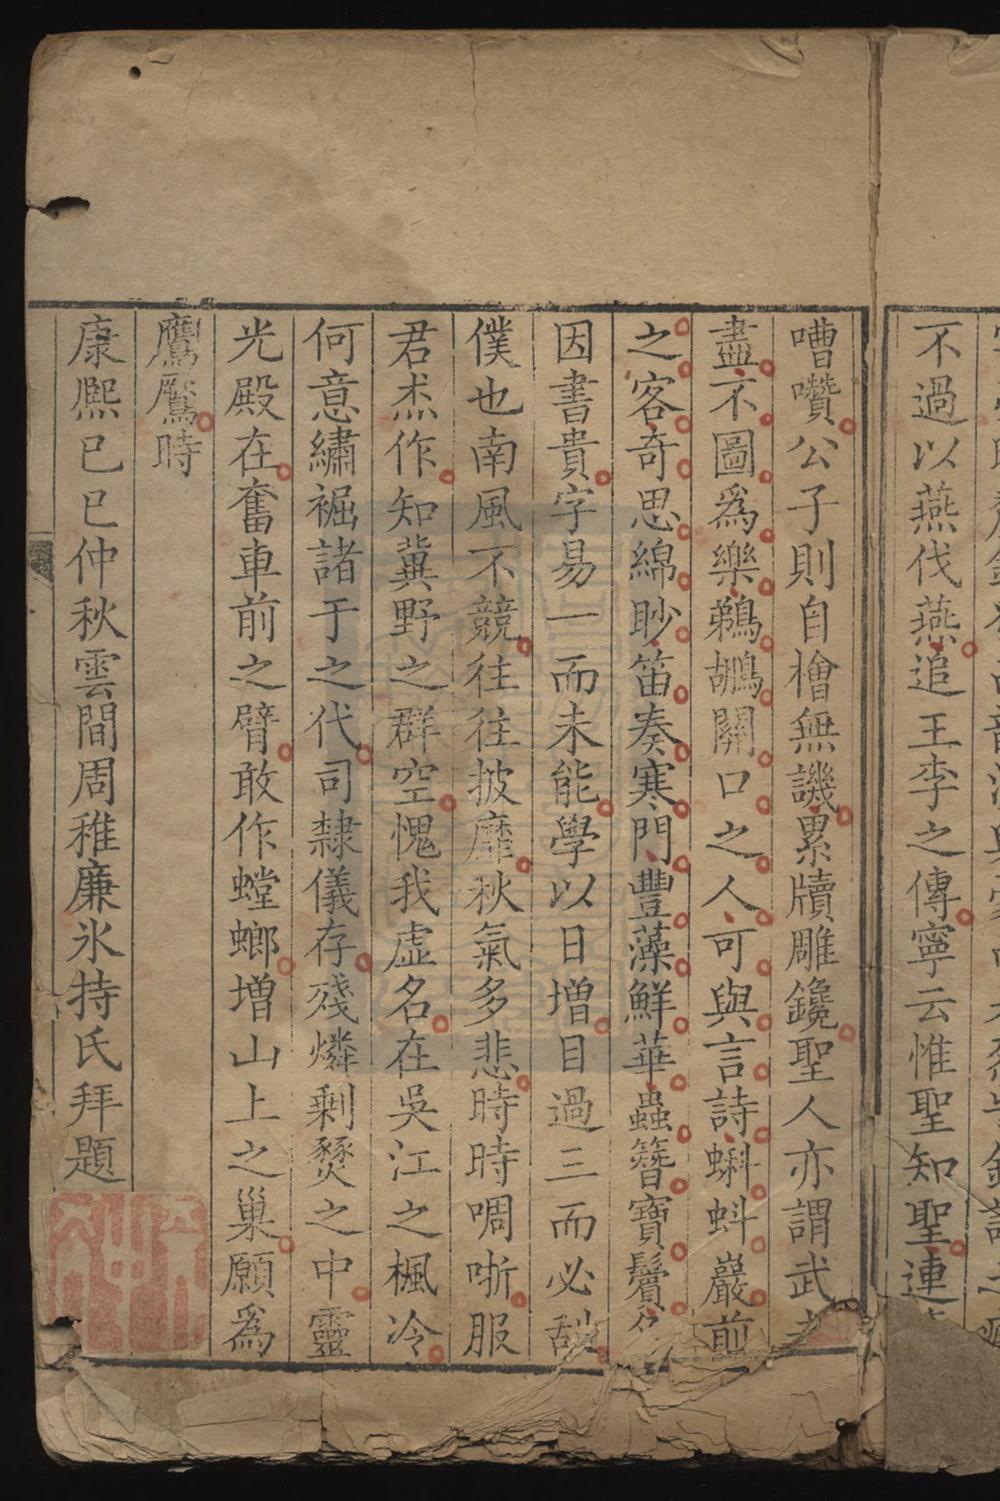 不過以燕伐燕追王李之傳寧云惟聖知聖連
嘈囋公子則自檜無譏累牘雕鑱聖人亦謂武
盡不圖爲樂鵜鶘關口之人可與言詩蝌蚪巖前
之客奇思綿眇笛奏寒門豐藻鮮華蟲簪寶鬢
因書貴字易一而未能學以日增目過三而必
僕也南風不競往往披靡秋氣多悲時時啁哳服
君杰作知冀野之群空愧我虛名在吳江之楓冷
何意繡裾諸于之代司隸儀存殘燐剩燹之中靈
光殿在奮車前之臂敢作螳螂增山上之巢願爲
鷹鸇時
康熙已巳仲秋雲間周稚廉氷持氏拜題